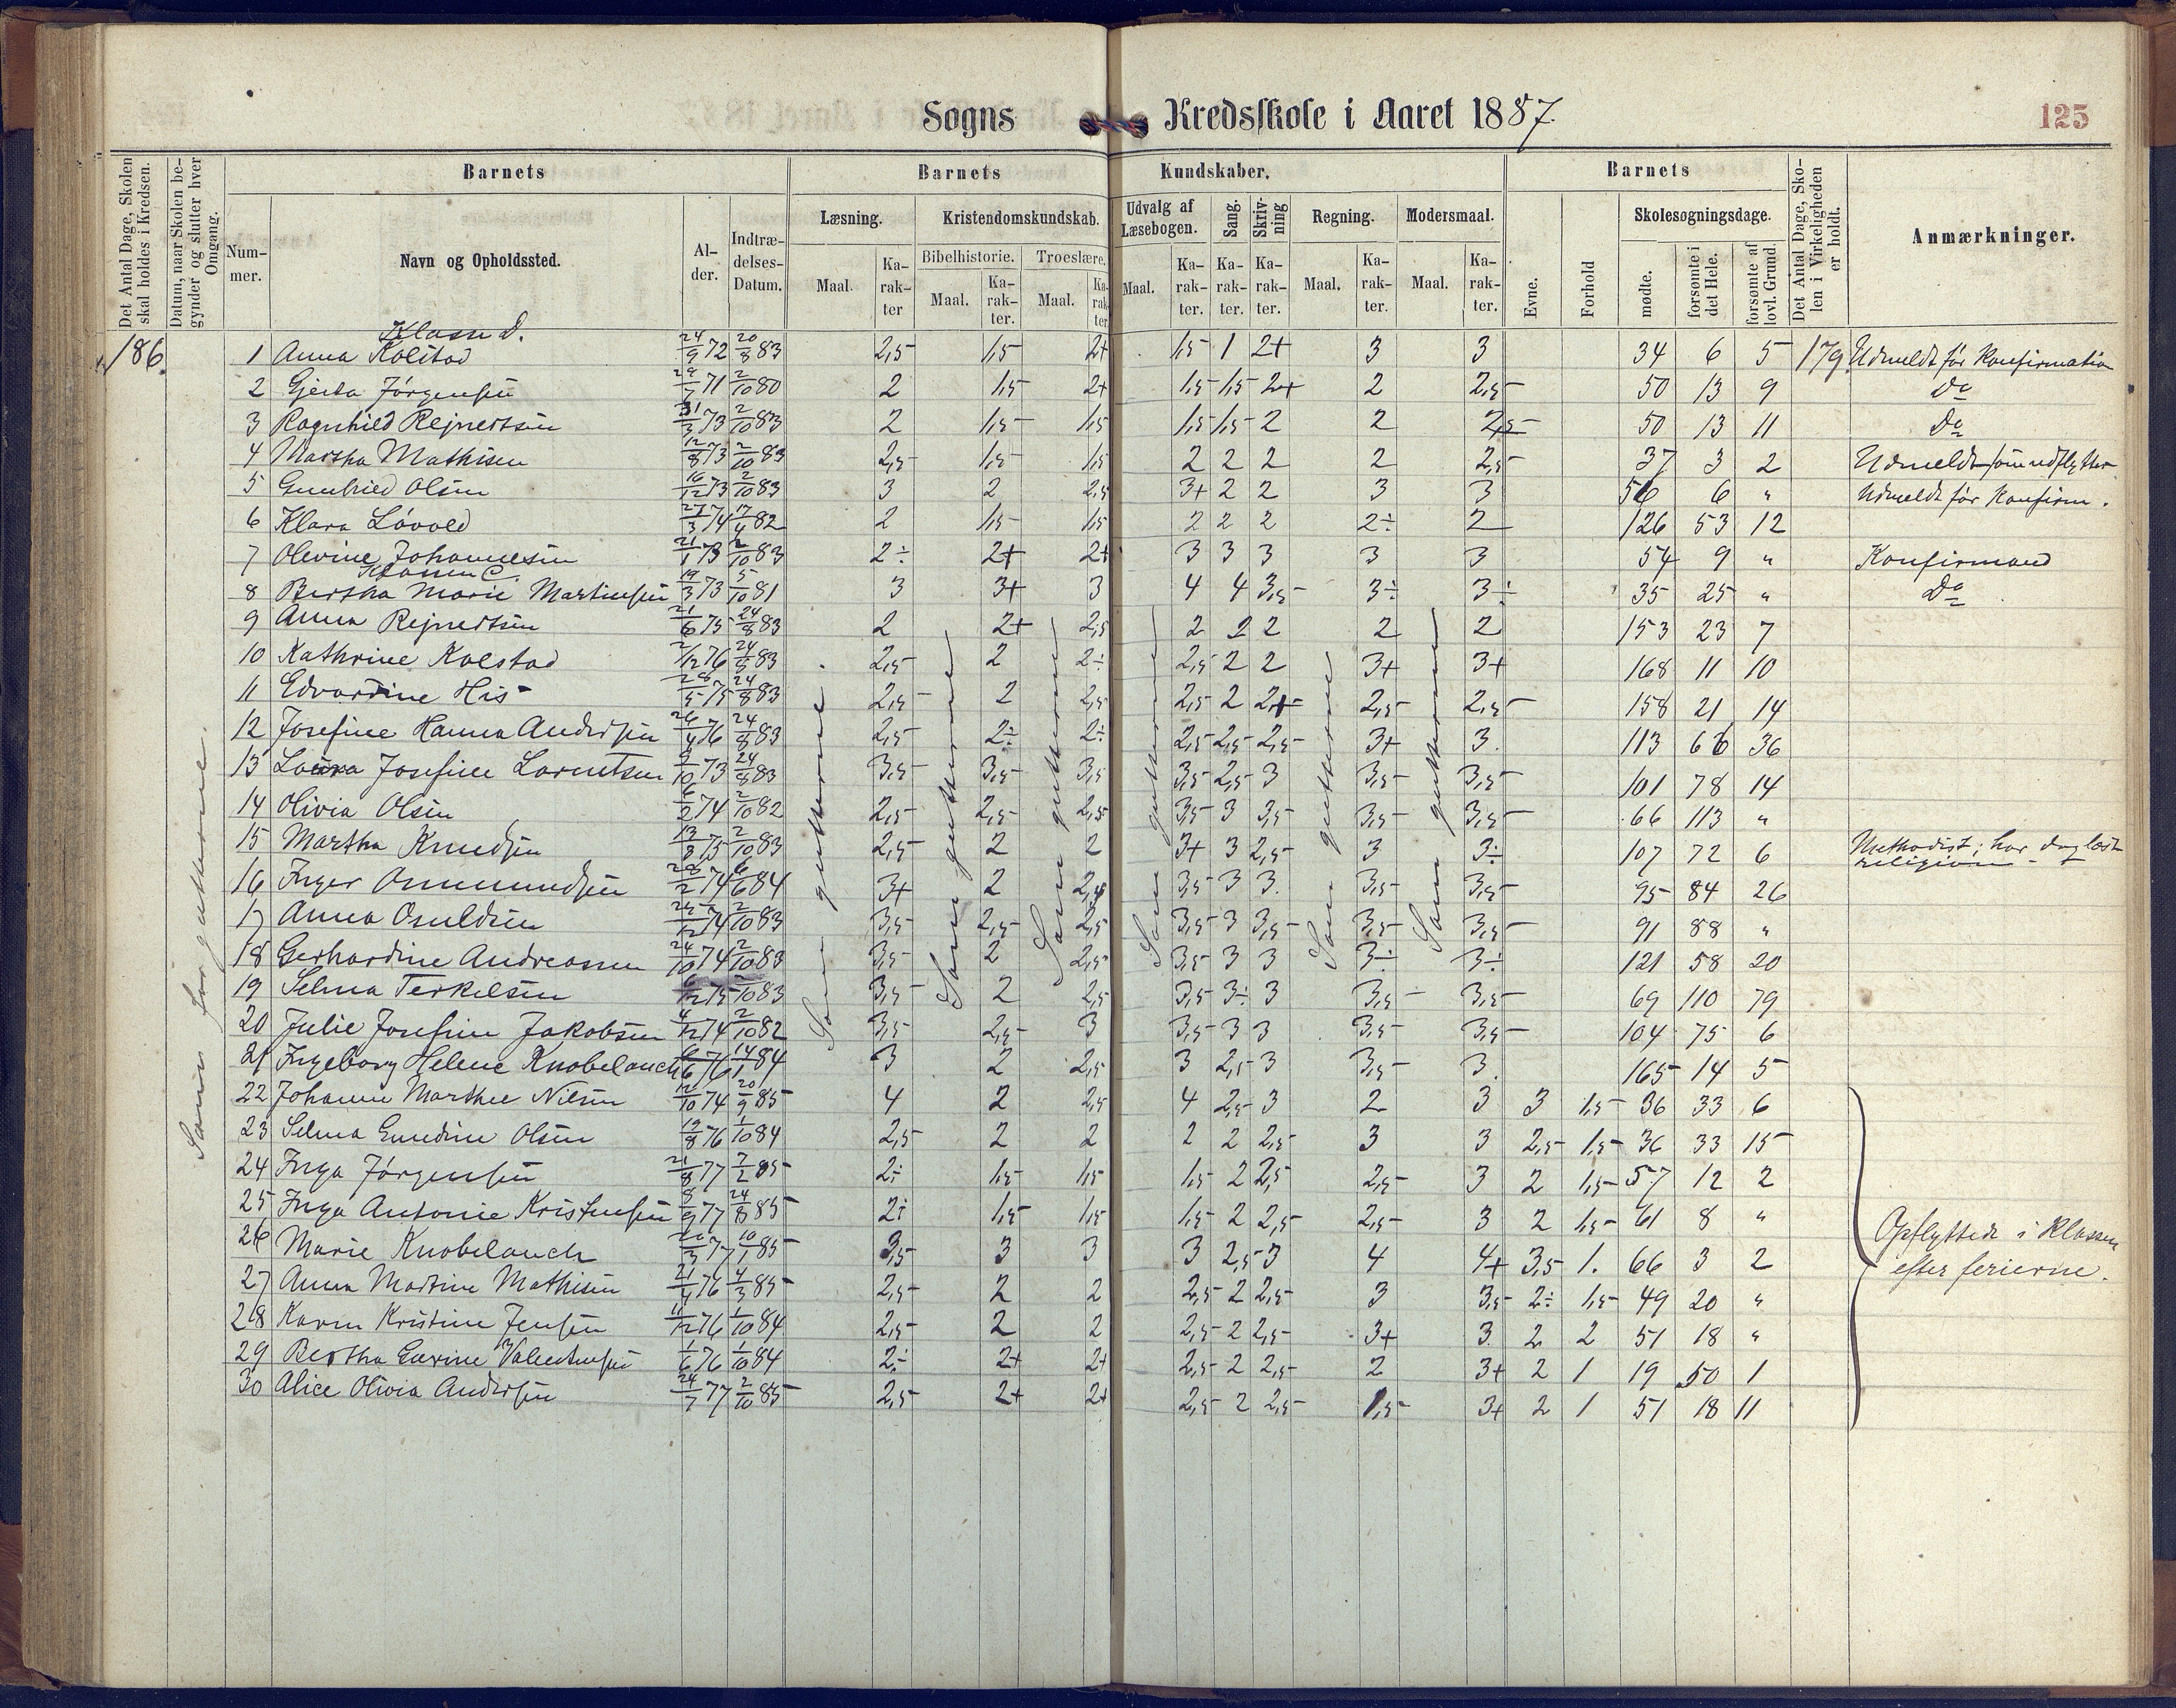 Sogns Kredsskole i Aaret 1887.
125
Det Antal Dage, Skolen skal holdes i Kredsen.
Datum, naar Skolen begynder og slutter hver Omgang.
Barnets
Barnets Kundskaber.
Barnets
Det Antal Dage, Skolen i Virkeligheden er holdt.
Anmærkninger.
Nummer.
Navn og Opholdssted.
Alder.
Indtrædelses-Datum.
Læsning.
Kristendomskundskab.
Udvalg af Læsebogen.
Sang.
Skrivning
Regning.
Modersmaal.
Evne.
Forhold
Skolesøgningsdage.
Bibelhistorie.
Troeslære.
Maal.
Karakter
Maal.
Karakter.
Maal.
Karakter
Maal.
Karakter.
Karakter.
Karakter.
Maal.
Karakter.
Maal.
Karakter.
mødte.
forsømte i det Hele.
forsømte af lovl. Grund.
Klasse D.
186. 1 Anna Kolstad 24/9 72 20/8 83 2,5 1,5 2+ 1,5 1 2+ 3 3 34 6 5 179 Udmeldt før Konfirmation
2 Gjerda Jørgensen 29/7 71 2/10 80 2 1,5 2+ 1,5 1,5 2+ 2 2,5 50 13 9 Do
3 Ragnhild Rejnertsen 31/3 73 2/10 83 2 1,5 1,5 1,5 1,5 2 2 2,5 50 13 11 Do
4 Martha Mathisen 12/8 73 2/10 83 2,5 1,5 1,5 2 2 2 2 2,5 37 3 2 Udmeldt som udflyttet
5 Gunhild Olsen 16/12 73 2/10 83 3 2 2,5 3+ 2 2 3 3 56 6 " Udmeldt før Konfirm.
6 Klara Løvold 27/3 74 17/4 82 2 1,5 1,5 2 2 2 2÷ 2 126 53 12
7 Olevine Johannesen 21/1 73 2/10 83 2÷ 2+ 2+ 3 3 3 3 3 54 9 " Konfirmand
Klassen C.
8 Bertha Marie Martinsen 19/3 73 5/10 81 3 3+ 3 4 4 3,5 3÷ 3÷ 35 25 " Do
9 Anna Rejnertsen 21/6 75 24/8 83 2 2+ 2,5 2 2 2 2 2 153 23 7
10 Kathrine Kolstad 2/12 76 24/8 83 2,5 2 2÷ 2,5 2 2 3+ 3+ 168 11 10
11 Edvardine His 28/5 75 24/8 83 2,5 2 2,5 2,5 2 2+ 2,5 2,5 158 21 14
12 Josefine Hanna Andersen 26/4 76 24/8 83 2,5 2÷ 2÷ 2,5 2,5 2,5 3+ 3. 113 66 36
13 Laura Josefine Lorentsen 2/10 73 24/8 83 3,5 3,5 3,5 3,5 2,5 3 3,5 3,5 101 78 14
14 Olivia Olsen 6/2 74 2/10 82 2,5 2,5 2,5 3,5 3 3,5 3,5 3,5 66 113 "
15 Martha Knudsen 13/8 75 2/10 83 2,5 2 2 3+ 3 2,5 3 3÷ 107 72 6 Methodist; har dog læst religion
16 Inger Osmundsen 28/2 74 6/6 84 3+ 2 2,5 3,5 3 3. 3,5 3,5 95 84 26
17 Anna Osuldsen 25/12 74 2/10 83 3,5 2,5 2,5 3,5 3 3,5 3,5 3,5 91 88 "
18 Gerhardine Andreassen 24/10 74 2/10 83 3,5 2 2,5 3,5 3 3 3÷ 3÷ 121 58 20
19 Selma Terkelsen 6/12 75 2/10 83 3,5 2 2,5 3,5 3÷ 3 3,5 3,5 69 110 79
20 Julie Josefine Jakobsen 4/12 74 2/10 82 3,5 2,5 3 3,5 3 3 3,5 3,5 104 75 6
21 Ingeborg Helene Knobelauch 6/6 76 14/1 84 3 2 2,5 3 2,5 3 3,5 3. 165 14 5
22 Johanne Marthe Nilsen 12/10 74 20/9 85 4 2 2,5 4 2,5 3 2 3 3 1,5 36 33 6
23 Selma Emedine Olsen 19/8 76 1/10 84 2,5 2 2 2 2 2,5 3 3 2,5 1,5 36 33 15
24 Inga Jørgensen 21/8 77 2/2 85 2÷ 1,5 1,5 1,5 2 2,5 2,5 3 2 1,5 57 12 2
25 Inga Antonie Kristensen 8/9 77 24/8 85 2÷ 1,5 1,5 1,5 2 2,5 2,5 3 2 1,5 61 8 "
26 Marie Knobelauch 20/3 77 10/1 85 3,5 3 3 3 2,5 3 4 4+ 3,5 1. 66 3 2
27 Anna Martine Mathisen 21/4 76 4/3 85 2,5 2 2 2,5 2 2,5 3 3,5 2÷ 1,5 49 20 "
28 Karen Kristine Jensen 11/12 76 1/10 84 2,5 2 2 2,5 2 2,5 3+ 3 2 2 51 18 "
29 Bertha Severine Valentinsen 1/6 76 1/10 84 2÷ 2+ 2+ 2,5 2 2,5 2 3+ 2 1 19 50 1
30 Alice Olivia Andersen 24/7 77 2/10 85 2,5 2+ 2+ 2,5 2 2,5 1,5 3+ 2 1 51 18 11
Opflyttede i Klassen
efter ferierne.
Som for gutterne.
Som gutterne.
Som gutterne
Som gutterne
Som gutterne
Som gutterne
Som gutterne